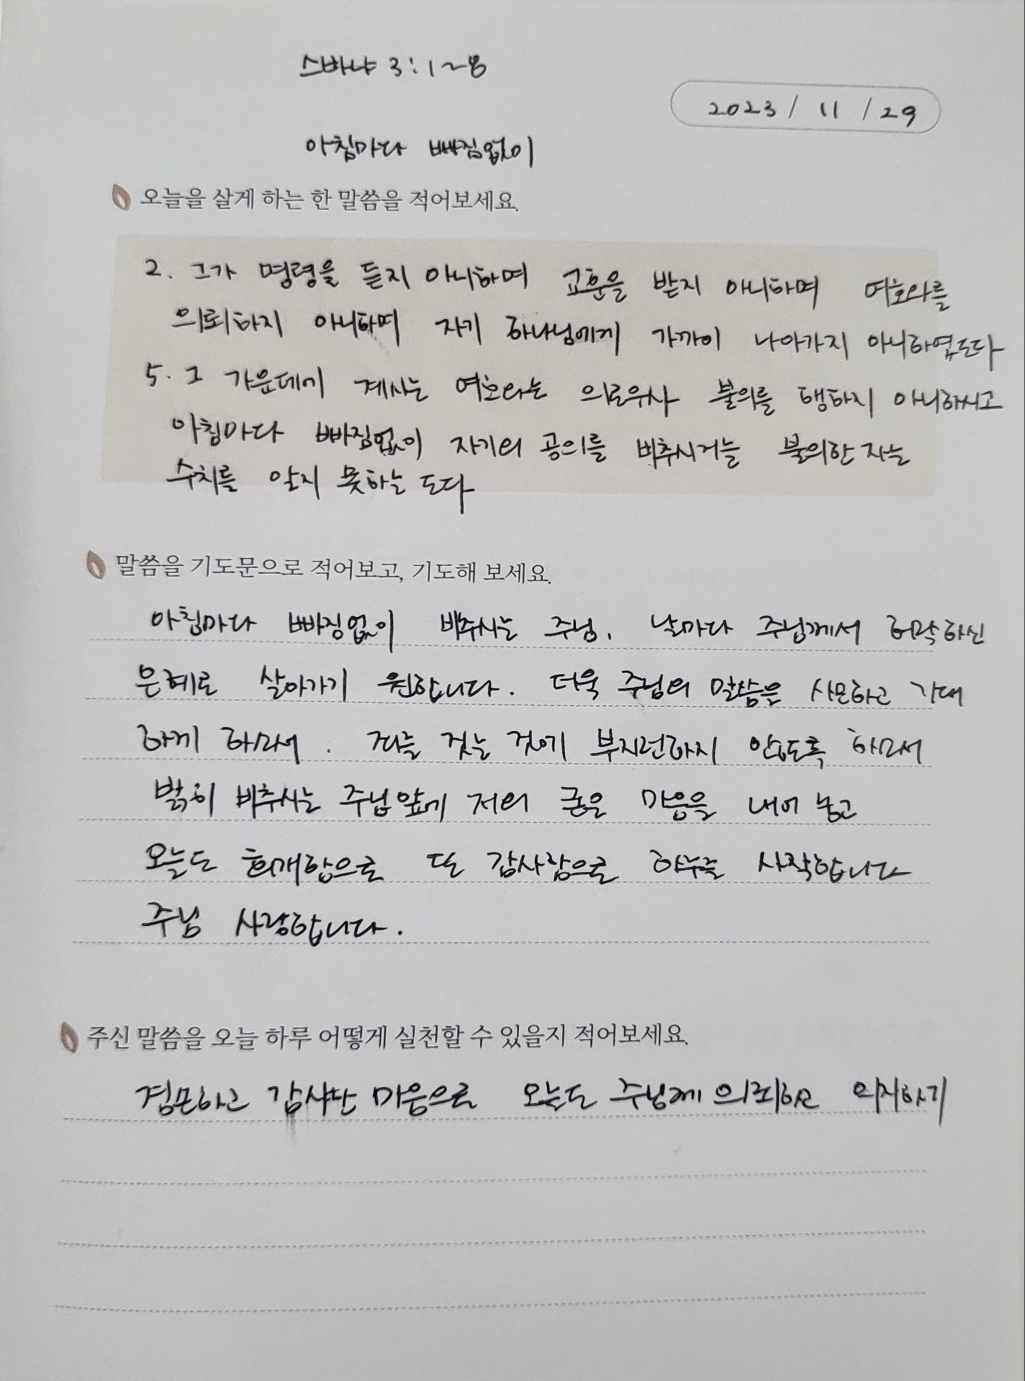 스바냐 3:1~8
2023 / 11 / 29
아침마다 빠짐없이
오늘을 살게 하는 한 말씀을 적어보세요.
2. 그가 명령을 듣지 아니하며 교훈을 받지 아니하며 여호와를
의뢰하지 아니하며 자기 하나님에게 가까이 나아가지 아니하였도다
5. 그 가운데에 계시는 여호와는 의로우사 불의를 행하지 아니하시고
아침마다 빠짐없이 자기의 공의를 비추시거늘 불의한 자는
수치를 알지 못하는 도다
말씀을 기도문으로 적어보고, 기도해 보세요.
아침마다 빠짐없이 비추시는 주님. 날마다 주님께서 허락하신
은혜로 살아가기 원합니다. 더욱 주님의 말씀을 사모하고 기대
하게 하소서. 깨닫는 것에 부지런하지 않도록 하소서
밝히 비추시는 주님앞에 저의 굽은 마음을 내어 놓고
오늘도 회개함으로 또 감사함으로 하루를 시작합니다
주님 사랑합니다.
주신 말씀을 오늘 하루 어떻게 실천할 수 있을지 적어보세요.
겸손하고 감사한 마음으로 오늘도 주님께 의뢰하고 의지하기